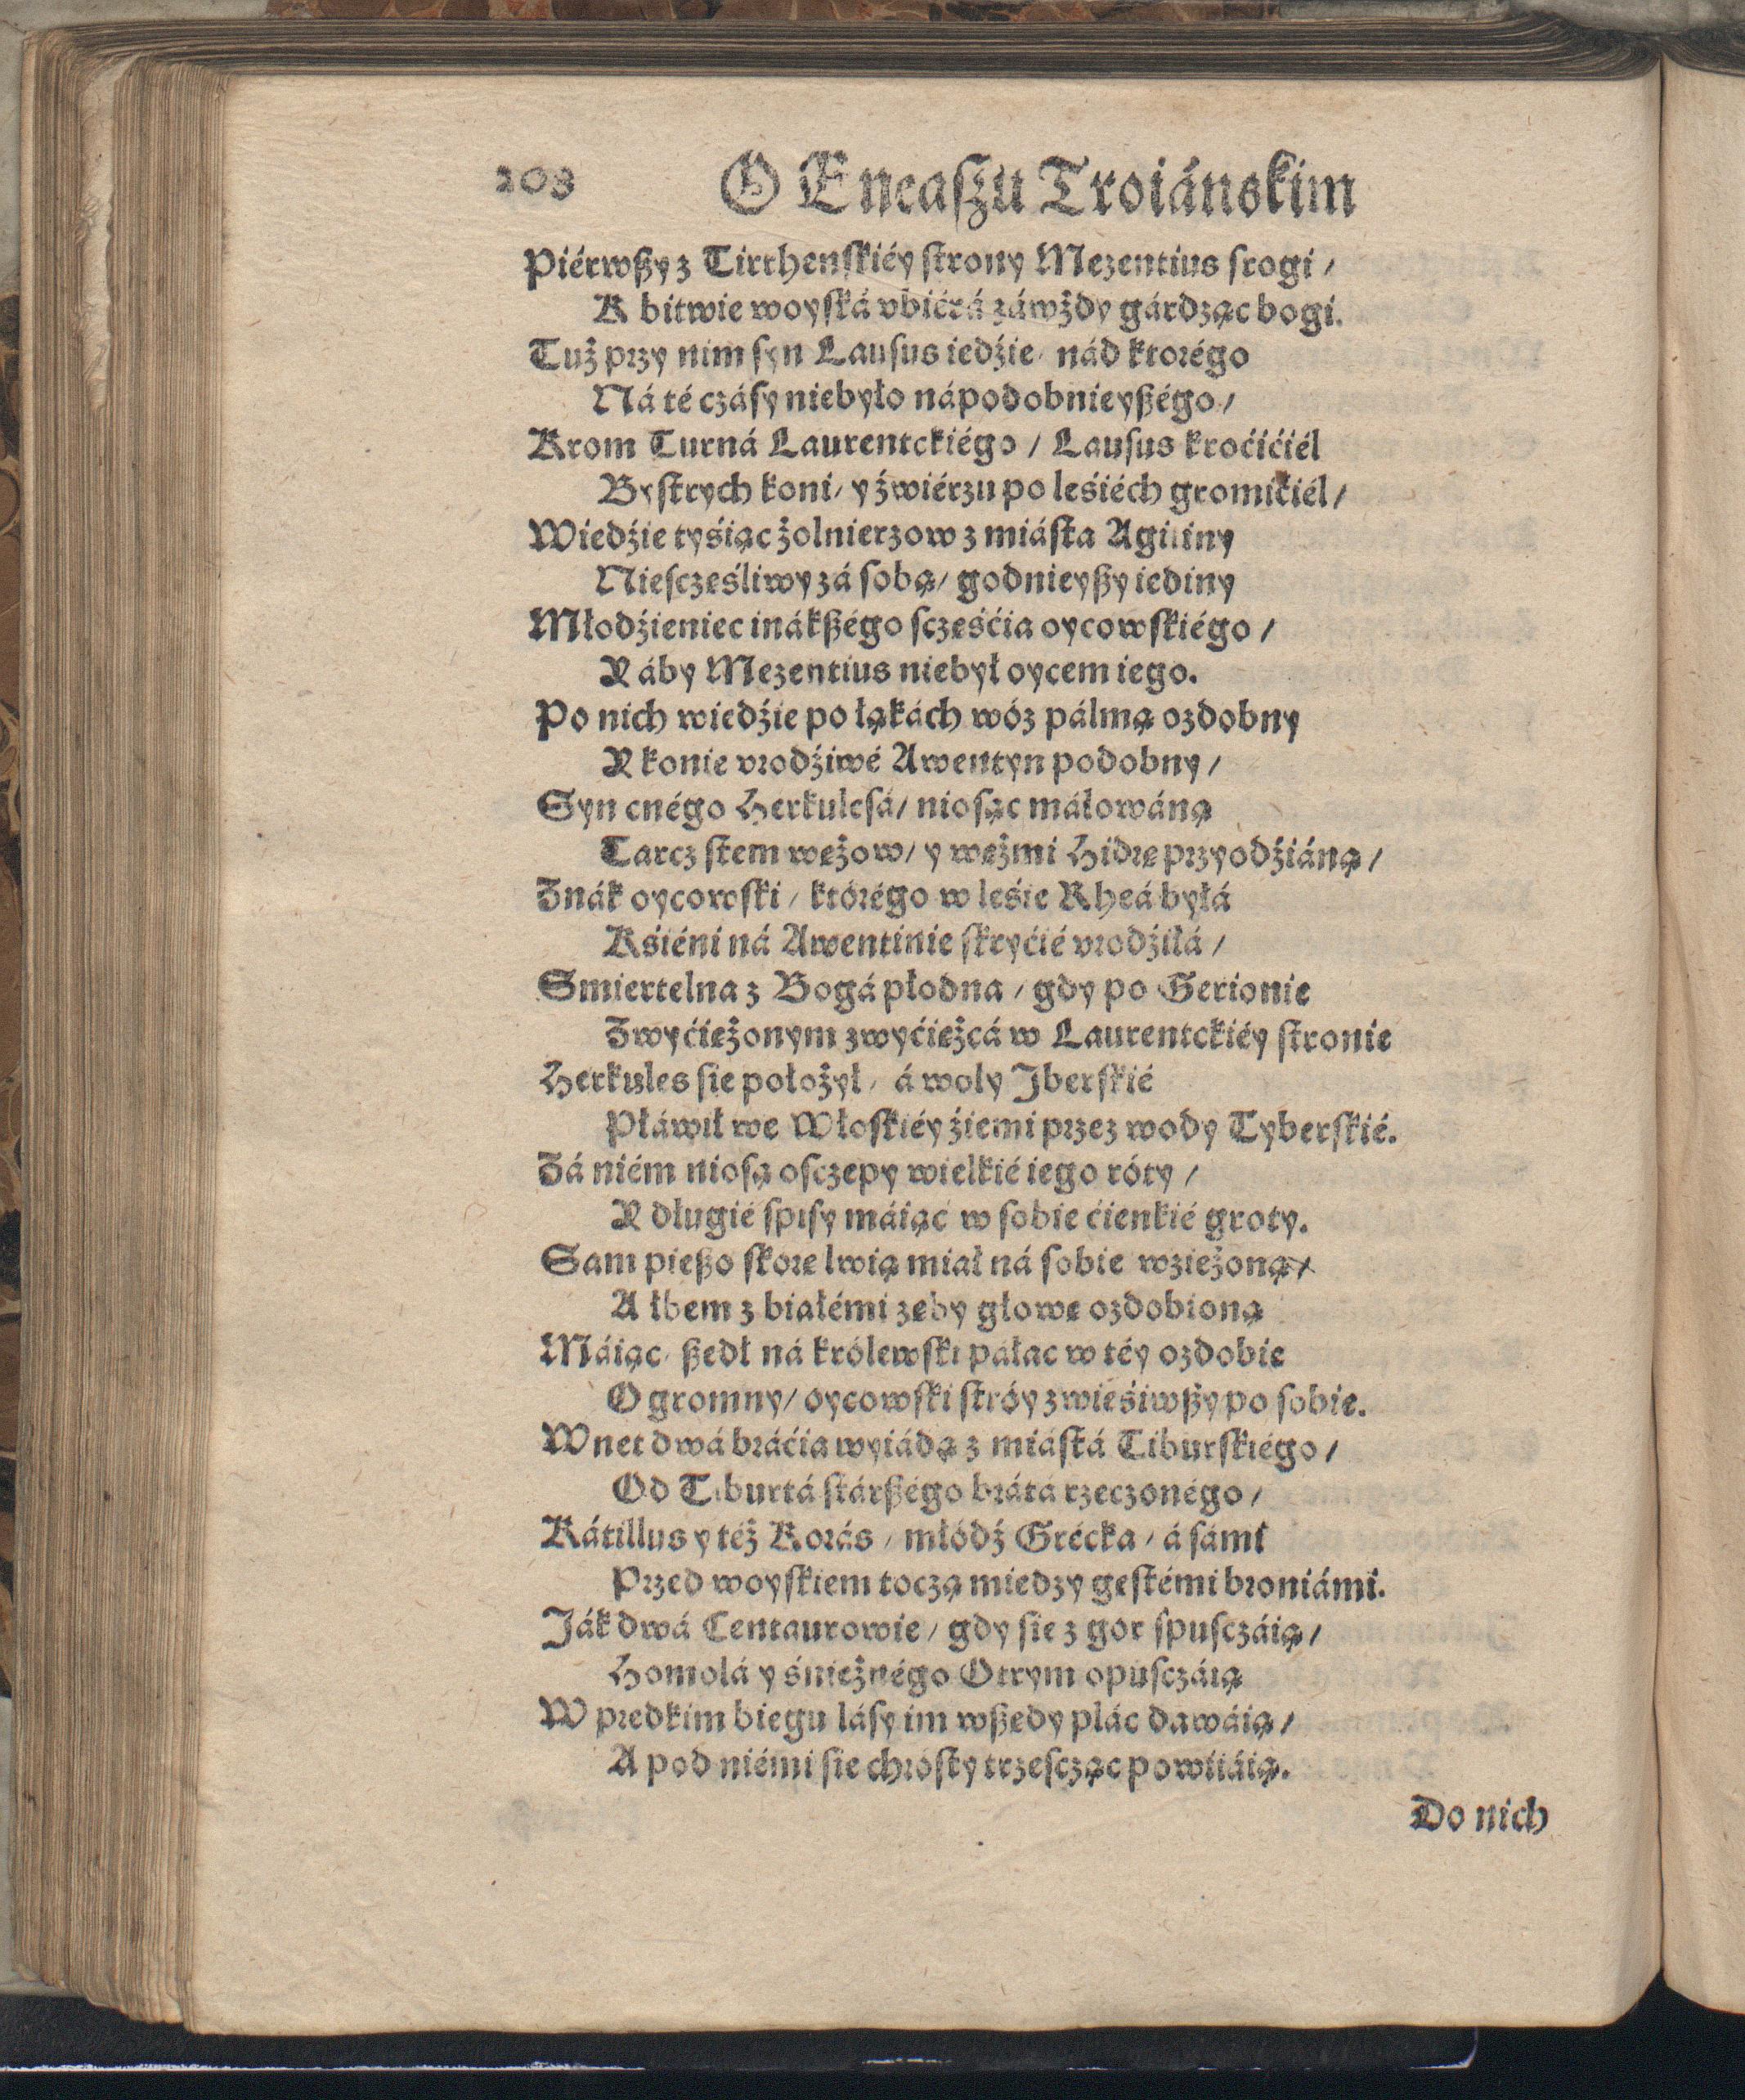 208 O Eneaszu Troiánskim
Piérwßy z Tirrhenskiéy strony Mezentius srogi /
K bitwie woyská vbiérá záwżdy gárdząc bogi.
Tuż przy nim syn Lausus iedźie / nád ktorégo
Ná té czásy niebyło nápodobnieyßégo /
Krom Turná Laurentckiégo / Lausus kroćićiél
Bystrych koni / y źwiérzu po leśiéch gromićiél /
Wiedźie tyśiąc żolnierzow z miásta Agiliny
Niesczęśliwy zá sobą / godnieyßy iediny
Młodźieniec inákßégo sczęśćia oycowskiégo /
Y áby Mezentius niebył oycem iego.
Po nich wiedźie po łąkách wóz pálmą ozdobny
Y konie vrodźiwé Awentyn podobny /
Syn cnégo Herkulesá / niosąc máłowáną
Tarcz stem wężow / y wężmi Hidrę przyodźiáną /
Znák oycowski / którégo w leśie Rheá byłá
Kśiéni ná Awentinie skryćié vrodźiłá /
Smiertelna z Bogá płodna / gdy po Gerionie
Zwyćiężonym zwyćiężcá w Laurentckiéy stronie
Herkules sie położył / á woly Jberskié
Płáwił we Włoskiéy źiemi przez wody Tyberskié.
Zá niém niosą osczepy wielkié iego róty /
Y długié spisy máiąc w sobie ćienkié groty.
Sam pießo skorę lwią miał ná sobie wzieżoną /
A łbem z białémi zęby głowę ozdobioną
Máiąc / ßedł ná królewski páłac w téy ozdobie
Ogromny / oycowski stróy zwieśiwßy po sobie.
Wnet dwá bráćia wyiádą z miástá Tiburskiégo /
Od Tiburtá stárßégo brátá rzeczonégo /
Kátillus y téż Korás / młódź Grécka / á sámi
Przed woyskiem toczą miedzy gęstémi broniámi.
Ják dwá Centaurowie / gdy sie z gor spusczáią /
Homolá y śnieżnégo Otrym opusczáią
W prędkim biegu lásy im wßędy plác dawáią /
A pod niémi sie chrósty trzescząc powiiáią.
Do nich